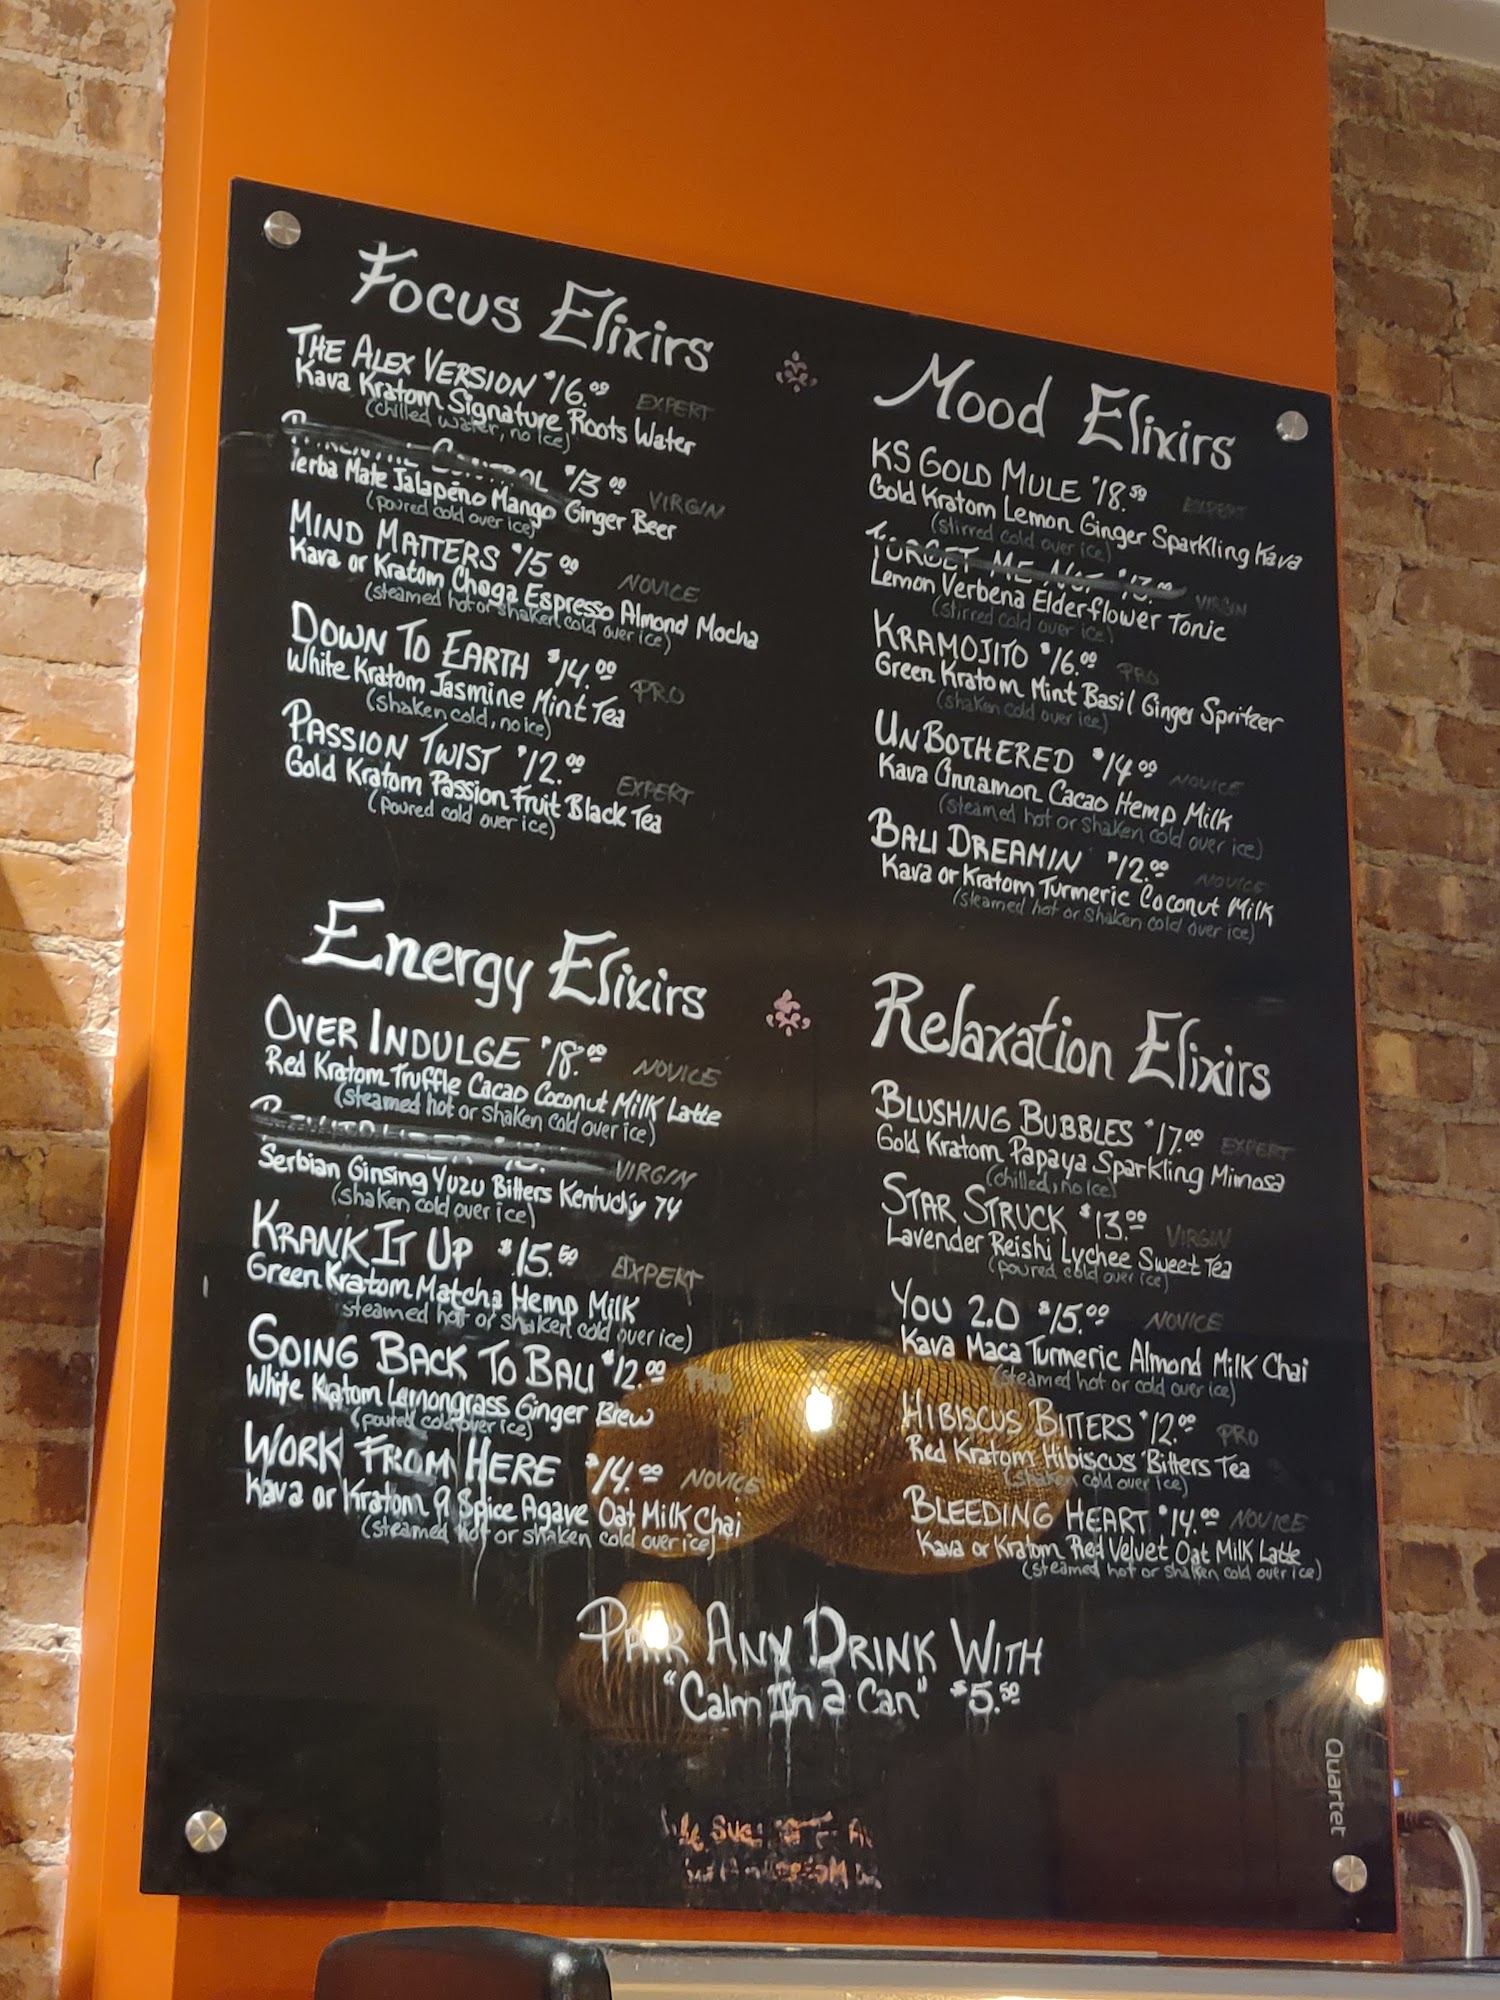 Focus Elixirs
THE ALEX VERSION $16.00 EXPERT
Kava Kratom Signature Roots Water
(chilled water, no ice)
CONTROL $13.00 VIRGIN
Yerba Mate Jalapeño Mango Ginger Beer
(poured cold over ice)
MIND MATTERS $15.00 NOVICE
Kava or Kratom Chaga Espresso Almond Mocha
(steamed hot or shaken cold over ice)
DOWN TO EARTH $14.00 PRO
White Kratom Jasmine Mint Tea
(shaken cold, no ice)
PASSION TWIST $12.00 EXPERT
Gold Kratom Passion Fruit Black Tea
(poured cold over ice)
Mood Elixirs
KS GOLD MULE $18.50 EXPERT
Gold Kratom Lemon Ginger Sparkling Kava
(stirred cold over ice)
FORGET ME NOT $13.00 VIRGIN
Lemon Verbena Elderflower Tonic
(stirred cold over ice)
KRAMOJITO $16.00 PRO
Green Kratom Mint Basil Ginger Spritzer
(shaken cold over ice)
UNBOTHERED $14.00 NOVICE
Kava Cinnamon Cacao Hemp Milk
(steamed hot or shaken cold over ice)
BALI DREAMIN $12.00 NOVICE
Kava or Kratom Turmeric Coconut Milk
(steamed hot or shaken cold over ice)
Energy Elixirs
OVER INDULGE $18.00 NOVICE
Red Kratom Truffle Cacao Coconut Milk Latte
(steamed hot or shaken cold over ice)
VIRGIN
Serbian Ginsing Yuzu Bitters Kentucky 74
(shaken cold over ice)
KRANK IT UP $15.50 EXPERT
Green Kratom Matcha Hemp Milk
steamed hot or shaken cold over ice)
GOING BACK TO BALI $12.00 PRO
White Kratom Lemongrass Ginger Brew
(poured cold over ice)
WORK FROM HERE $14.00 NOVICE
Kava or Kratom 9 Spice Agave Oat Milk Chai
(steamed hot or shaken cold over ice)
Relaxation Elixirs
BLUSHING BUBBLES $17.00 EXPERT
Gold Kratom Papaya Sparkling Mimosa
(chilled, no ice)
STAR STRUCK $13.00 VIRGIN
Lavender Reishi Lychee Sweet Tea
(poured cold over ice)
YOU 2.0 $15.00 NOVICE
Kava Maca Turmeric Almond Milk Chai
(steamed hot or cold over ice)
HIBISCUS BITTERS $12.00 PRO
Red Kratom Hibiscus Bitters Tea
(shaken cold over ice)
BLEEDING HEART $14.00 NOVICE
Kava or Kratom Red Velvet Oat Milk Latte
(steamed hot or shaken cold over ice)
PAIR ANY DRINK WITH
"Calm In a Can" $5.50
Quartet